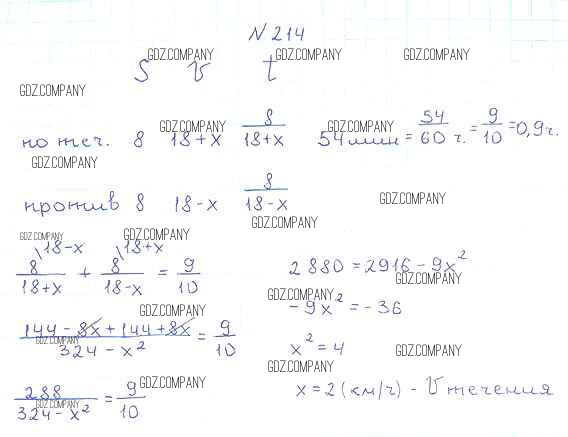 N 214
GDZ.COMPANY GDZ.COMPANY GDZ.COMPANY
S V t
GDZ.COMPANY
по теч. 8 18+x 8/(18+x) 54 мин = 54/60 ч. = 9/10 = 0,9 ч.
GDZ.COMPANY GDZ.COMPANY
GDZ.COMPANY
против 8 18-x 8/(18-x)
GDZ.COMPANY
GDZ.COMPANY
GDZ.COMPANY GDZ.COMPANY
\18-x \18+x
8/(18+x) + 8/(18-x) = 9/10
2880 = 2916 - 9x²
GDZ.COMPANY
GDZ.COMPANY
-9x² = -36
GDZ.COMPANY
(144 - 8x + 144 + 8x)/(324 - x²) = 9/10
GDZ.COMPANY
x² = 4
GDZ.COMPANY
GDZ.COMPANY
GDZ.COMPANY
288/(324 - x²) = 9/10
GDZ.COMPANY
x = 2 (км/ч) - V течения